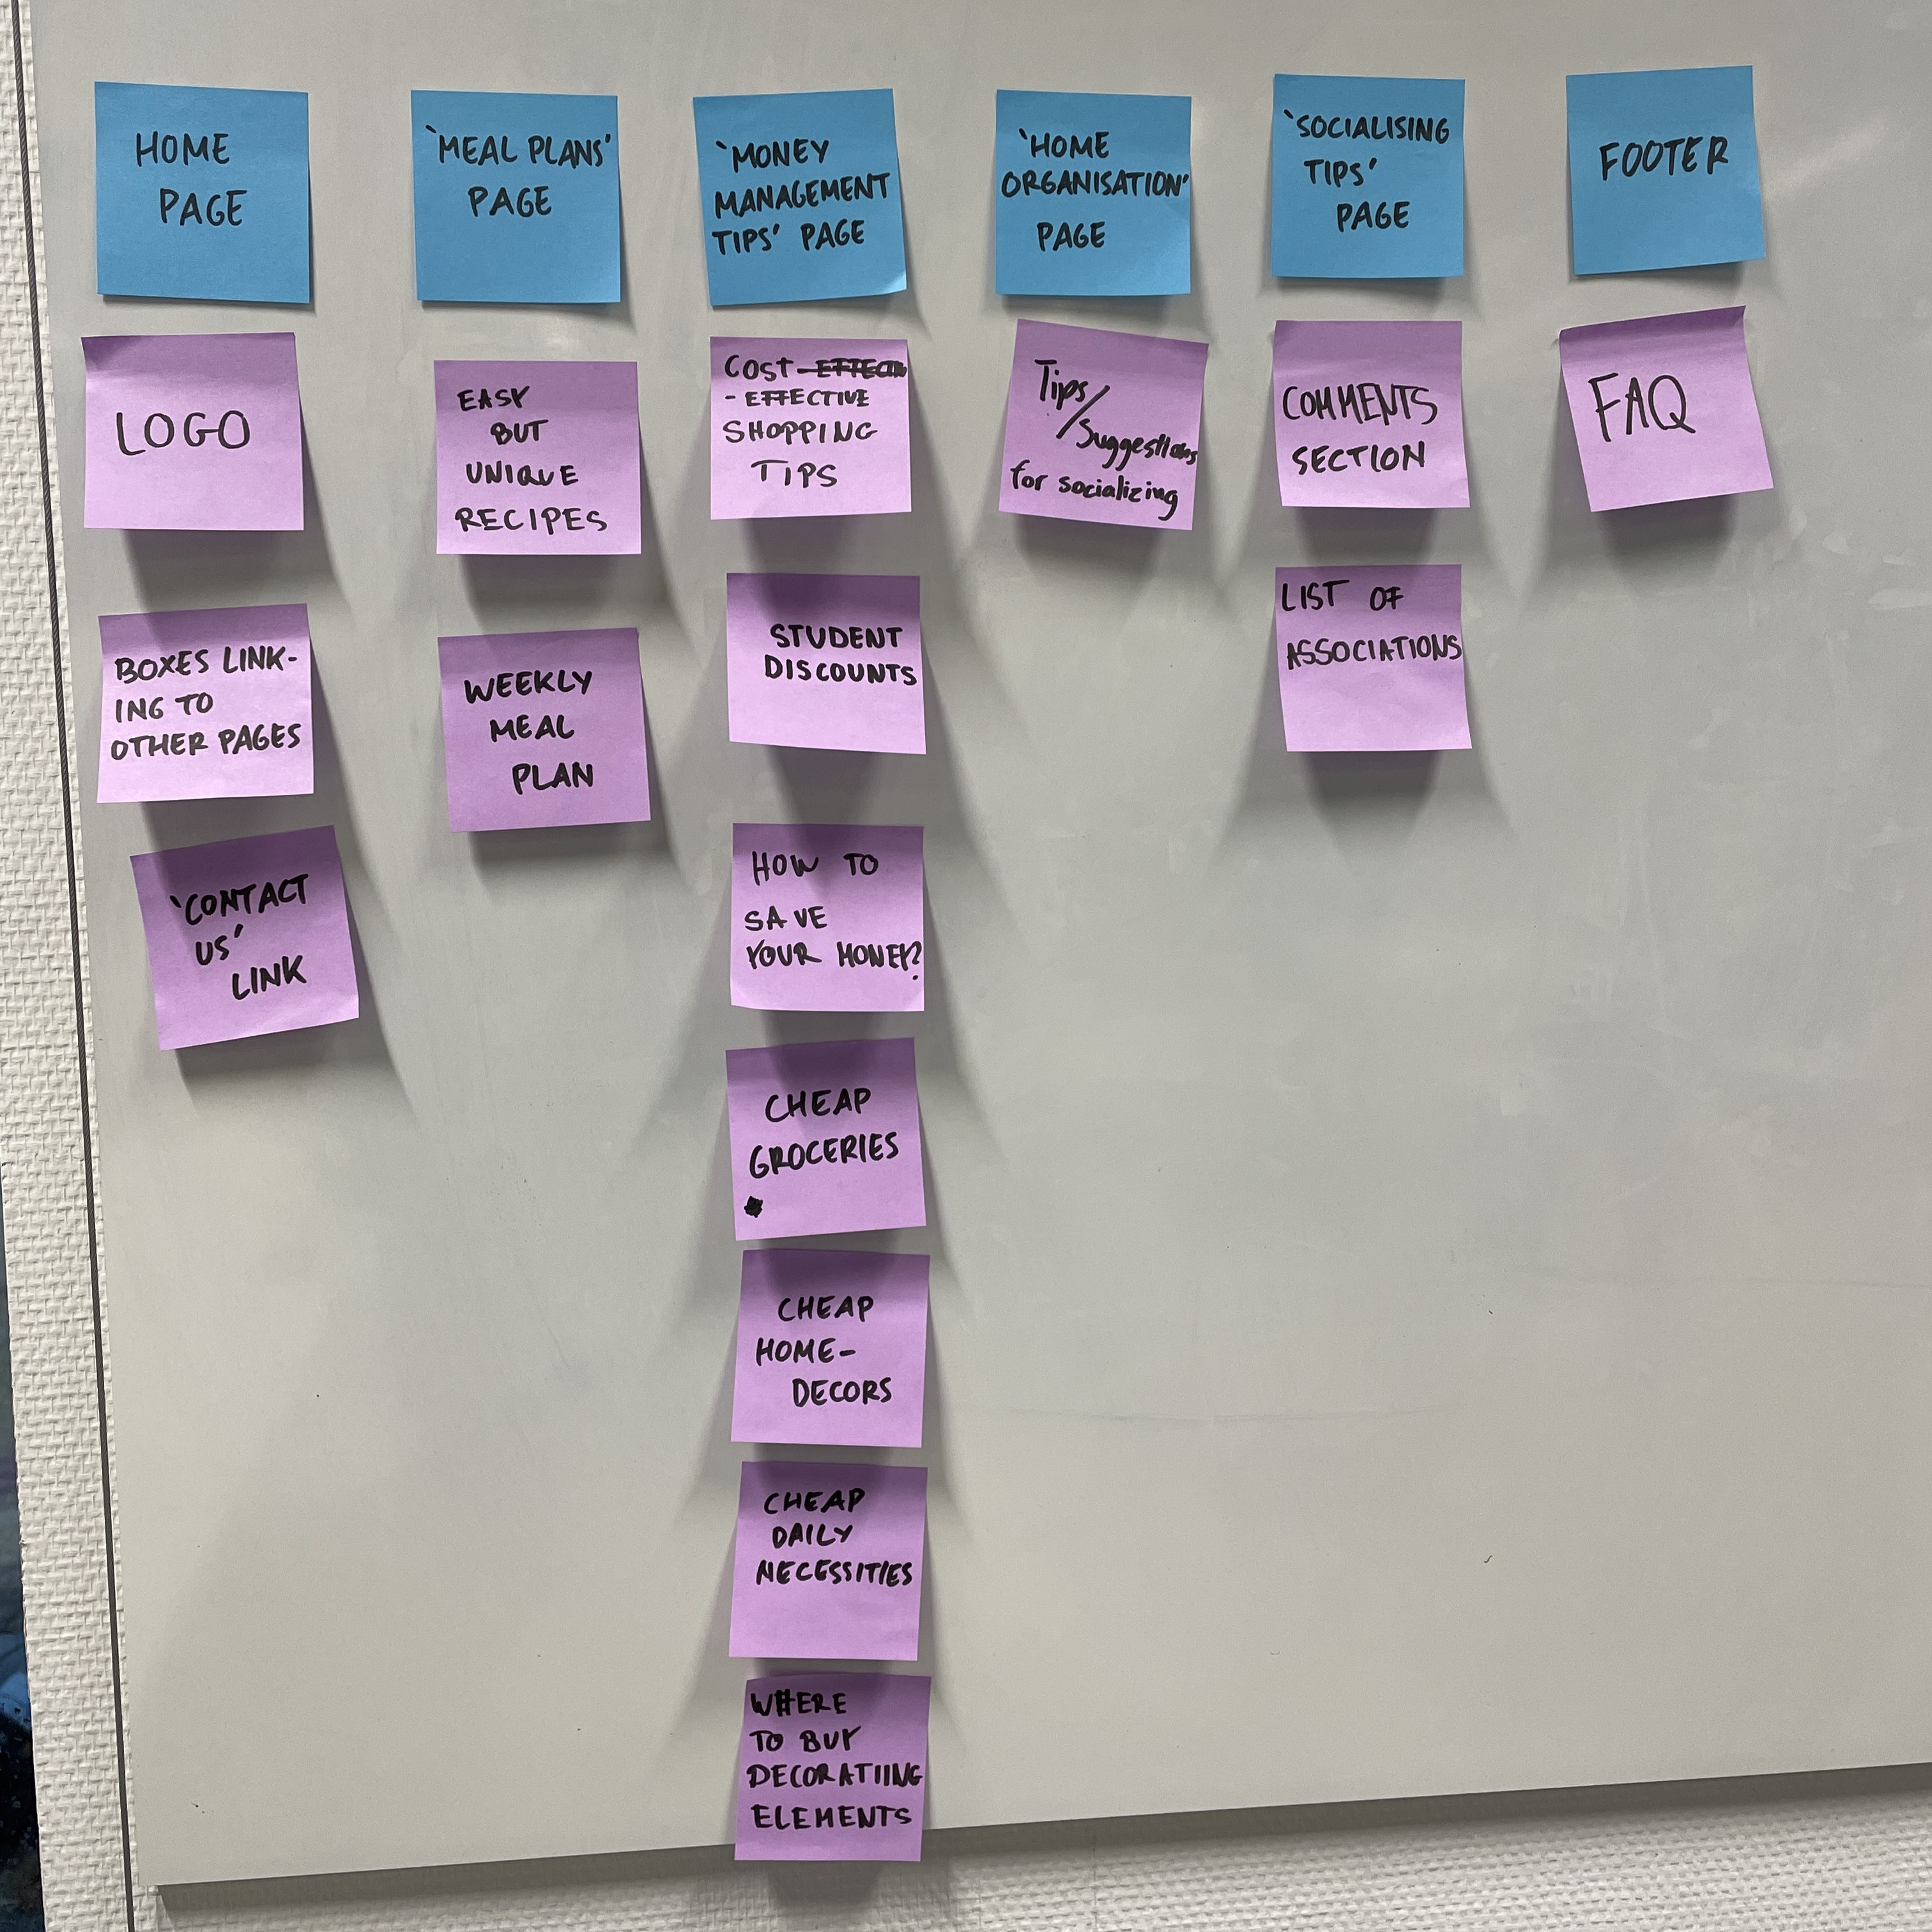 HOME
PAGE
LOGO
BOXES LINK-
ING TO
OTHER PAGES
'CONTACT
US'
LINK
'MEAL PLANS'
PAGE
EASY
BUT
UNIQUE
RECIPES
WEEKLY
MEAL
PLAN
'MONEY
MANAGEMENT
TIPS' PAGE
COST
- EFFECTIVE
SHOPPING
TIPS
STUDENT
DISCOUNTS
HOW TO
SAVE
YOUR MONEY?
CHEAP
GROCERIES
CHEAP
HOME-
DECORS
CHEAP
DAILY
NECESSITIES
WHERE
TO BUY
DECORATIING
ELEMENTS
'HOME
ORGANISATION'
PAGE
Tips/
Suggestions
for socializing
'SOCIALISING
TIPS'
PAGE
COMMENTS
SECTION
LIST OF
ASSOCIATIONS
FOOTER
FAQ